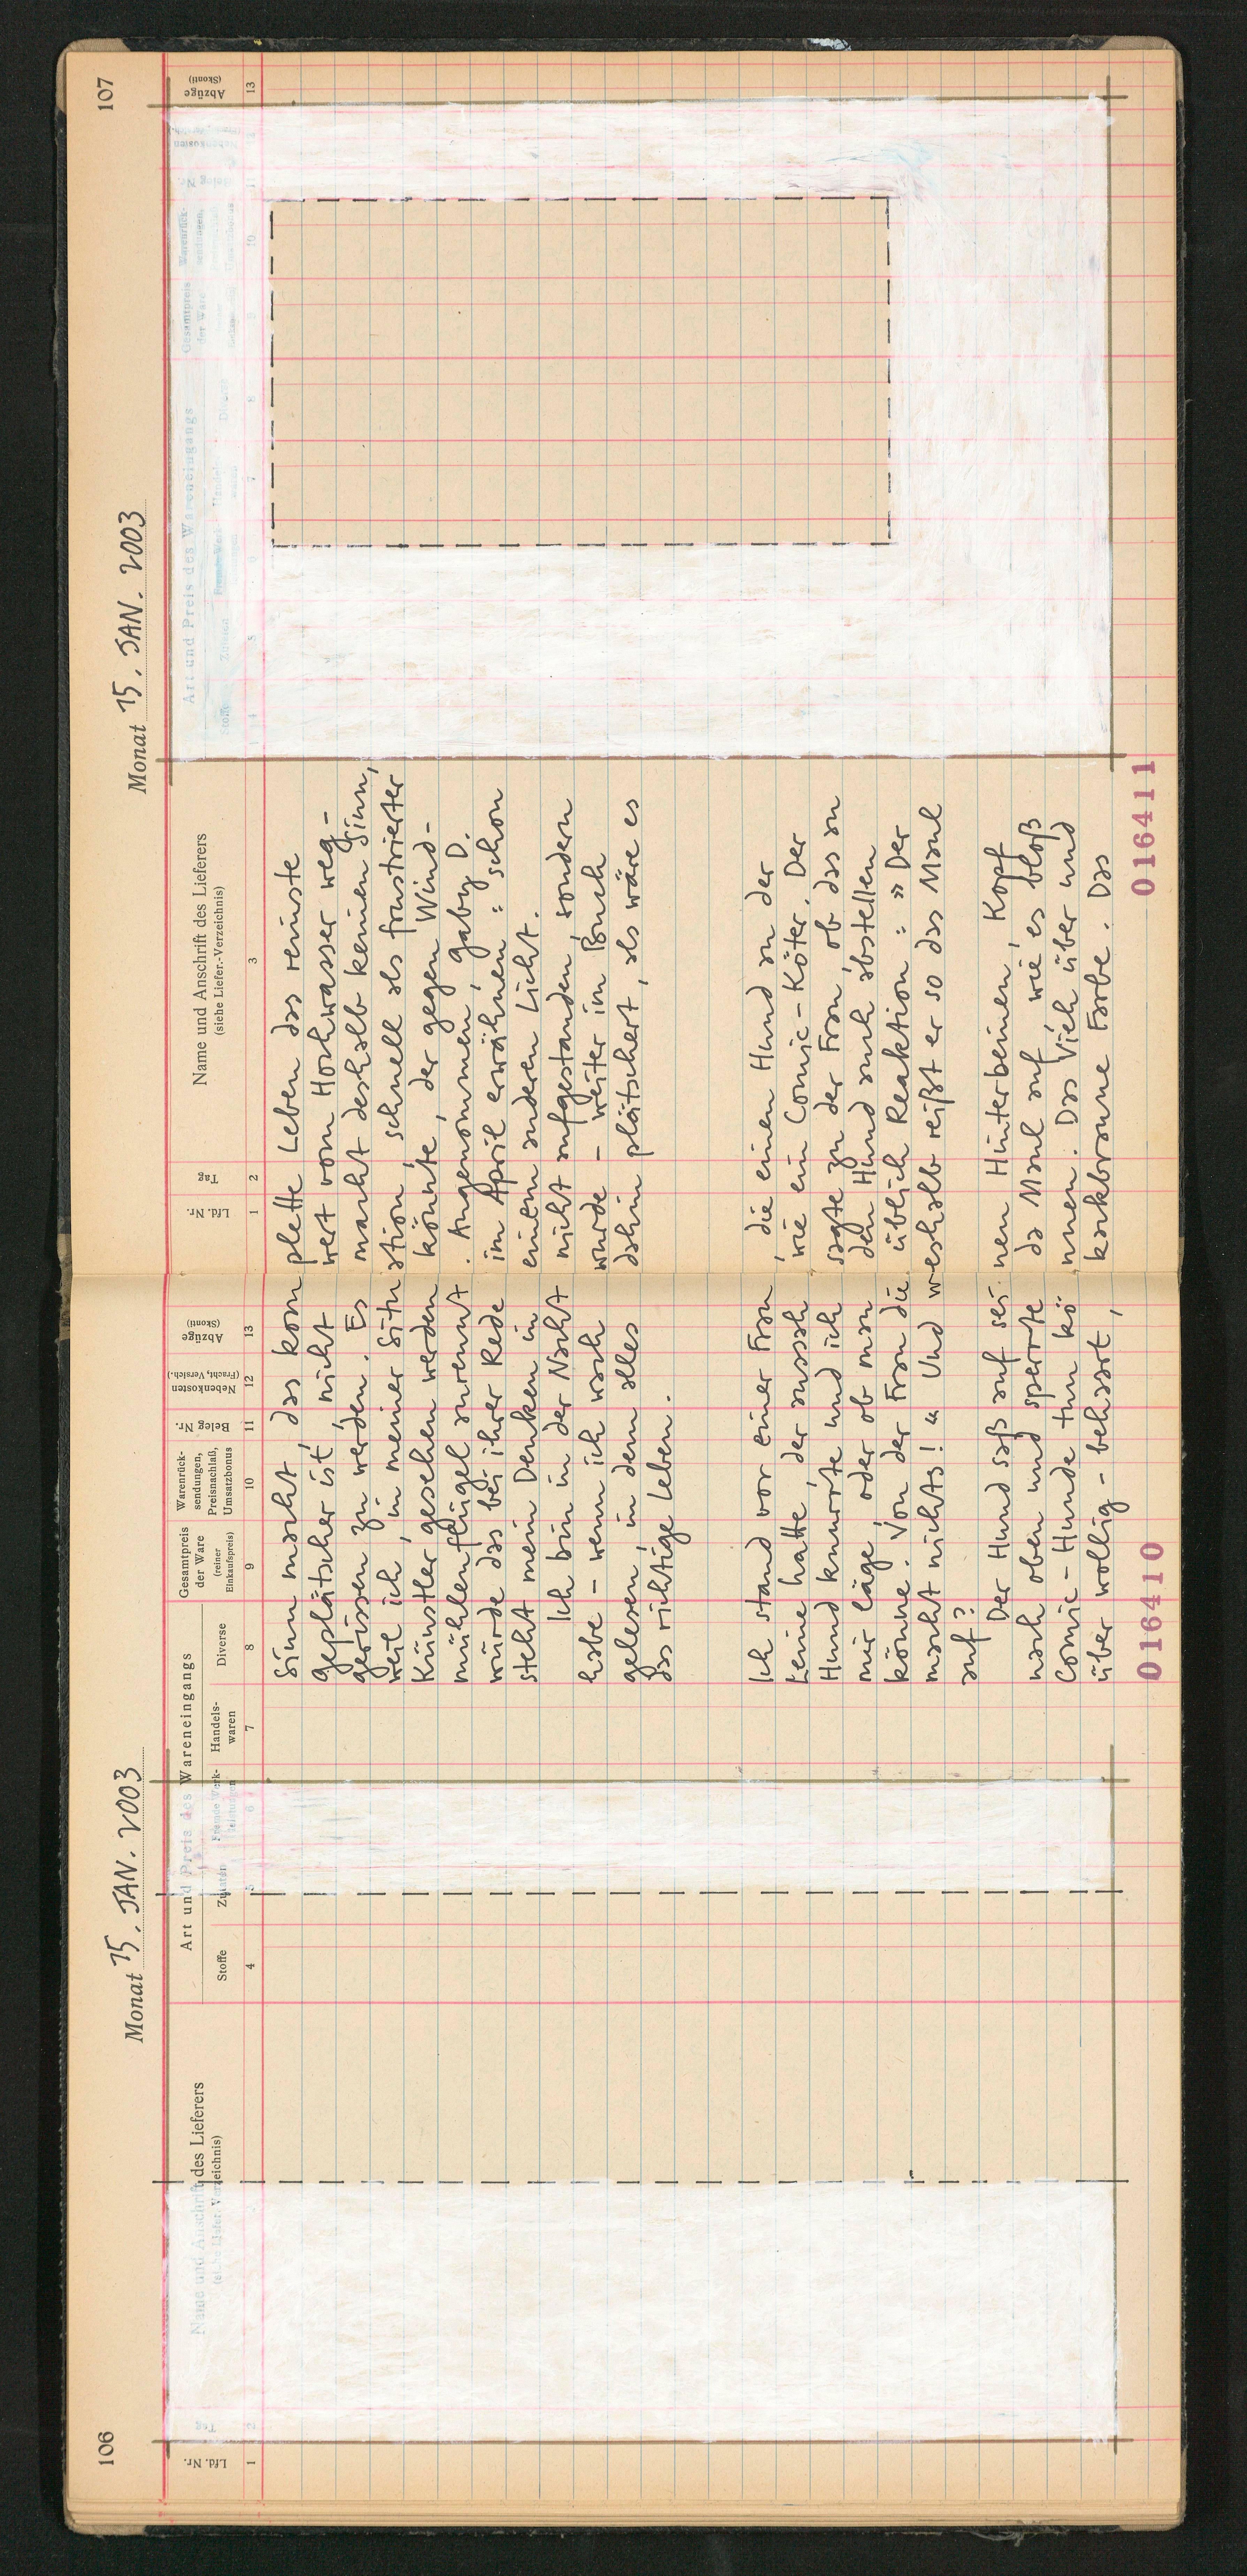 106
Monat 15. JAN. 2003
Lfd. Nr.
Tag
Name und Anschrift des Lieferers
(siehe Liefer.-Verzeichnis)
Art und Preis des Wareneingangs
Stoffe
Zutaten
Fremde Werk-
leistungen
Handels-
waren
Diverse
Gesamtpreis
der Ware
(reiner
Einkaufspreis)
Warenrück-
sendungen,
Preisnachlaß,
Umsatzbonus
Beleg Nr.
Nebenkosten
(Fracht, Versich.)
Abzüge
(Skonti)
1 2 4 5 6 7 8 9 10 11 12 13
107
Monat 15. JAN. 2003
Lfd. Nr.
Tag
Name und Anschrift des Lieferers
(siehe Liefer.-Verzeichnis)
Art und Preis des Wareneingangs
Gesamtpreis
der Ware
Abzüge
(Skonti)
1 2 3 4 5 6 7 8 9 10 13
Sinn macht, das kom plette Leben das reinste
Geplätscher ist, nicht wert vom Hochwasser weg-
gerissen zu werden. Es macht deshalb keinen Sinn,
weil ich, in meiner Situ ation, schnell als frustrierter
Künstler gesehen werden könnte, der gegen Wind-
mühlenflügel anrennt. Angenommen, Gaby D.
würde das bei ihrer Rede im April erwähnen: schon
steht mein Denken in einem anderen Licht.
Ich bin in der Nacht nicht aufgestanden, sondern
habe - wenn ich wach wurde - weiter im
gelesen, in dem alles dahin plätschert, als wäre es
das richtige Leben.
Ich stand vor einer Frau, die einen Hund an der
Leine hatte, der aussah wie ein Comic-Köter. Der
Hund knurrte und ich sagte zu der Frau, ob das an
mir läge oder ob man den Hund auch abstellen
könne. Von der Frau die üblich Reaktion: »Der
macht nichts!« Und weshalb reißt er so das Maul
auf?
Der Hund saß auf sei nen Hinterbeinen, Kopf
nach oben und sperrte da Maul auf, wie es bloß
Comic-Hunde tun kö nnen. Das Vieh über und
über wollig-behaart, kackbraune Farbe. Das
016410
016411